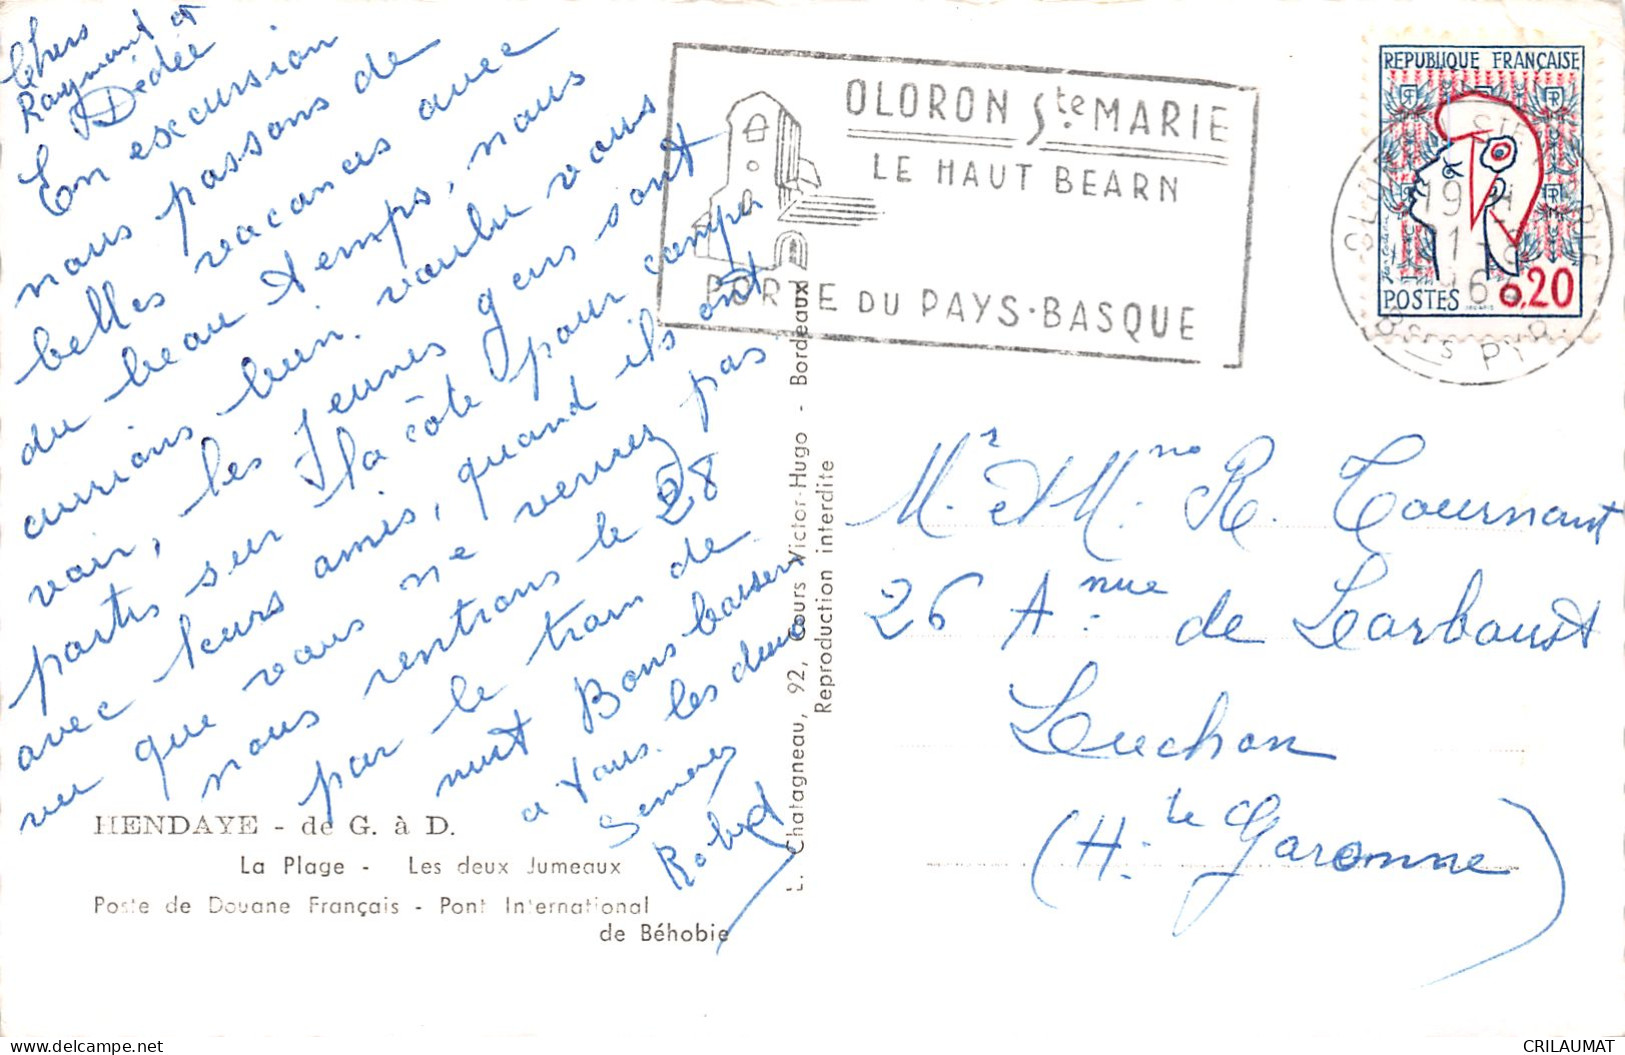 Chers
Raymond et
Dédée
En excursion
nous passons de
belles vacances avec
du beau temps, nous
aurions bien voulu vous
voir, les jeunes gens sont
partis sur la côte pour camper
avec leurs amis, quand ils ont
vu que vous ne verrez pas
nous rentrons le 28
par le train de
nuit Bons baisers
a tous. les deux
Robert
HENDAYE - de G. à D.
La Plage - Les deux Jumeaux
Poste de Douane Français - Pont International
de Béhobie
L. Chatagneau, 92, Cours Victor-Hugo - Bordeaux
Reproduction interdite
OLORON Ste MARIE
LE HAUT BEARN
PORTE DU PAYS-BASQUE
REPUBLIQUE FRANÇAISE
POSTES 0,20
19 H
Bses PYR.
Mr et Mme R. Tournant
26 Anue de Larboust
Luchon
(Hte Garonne)
CRILAUMAT